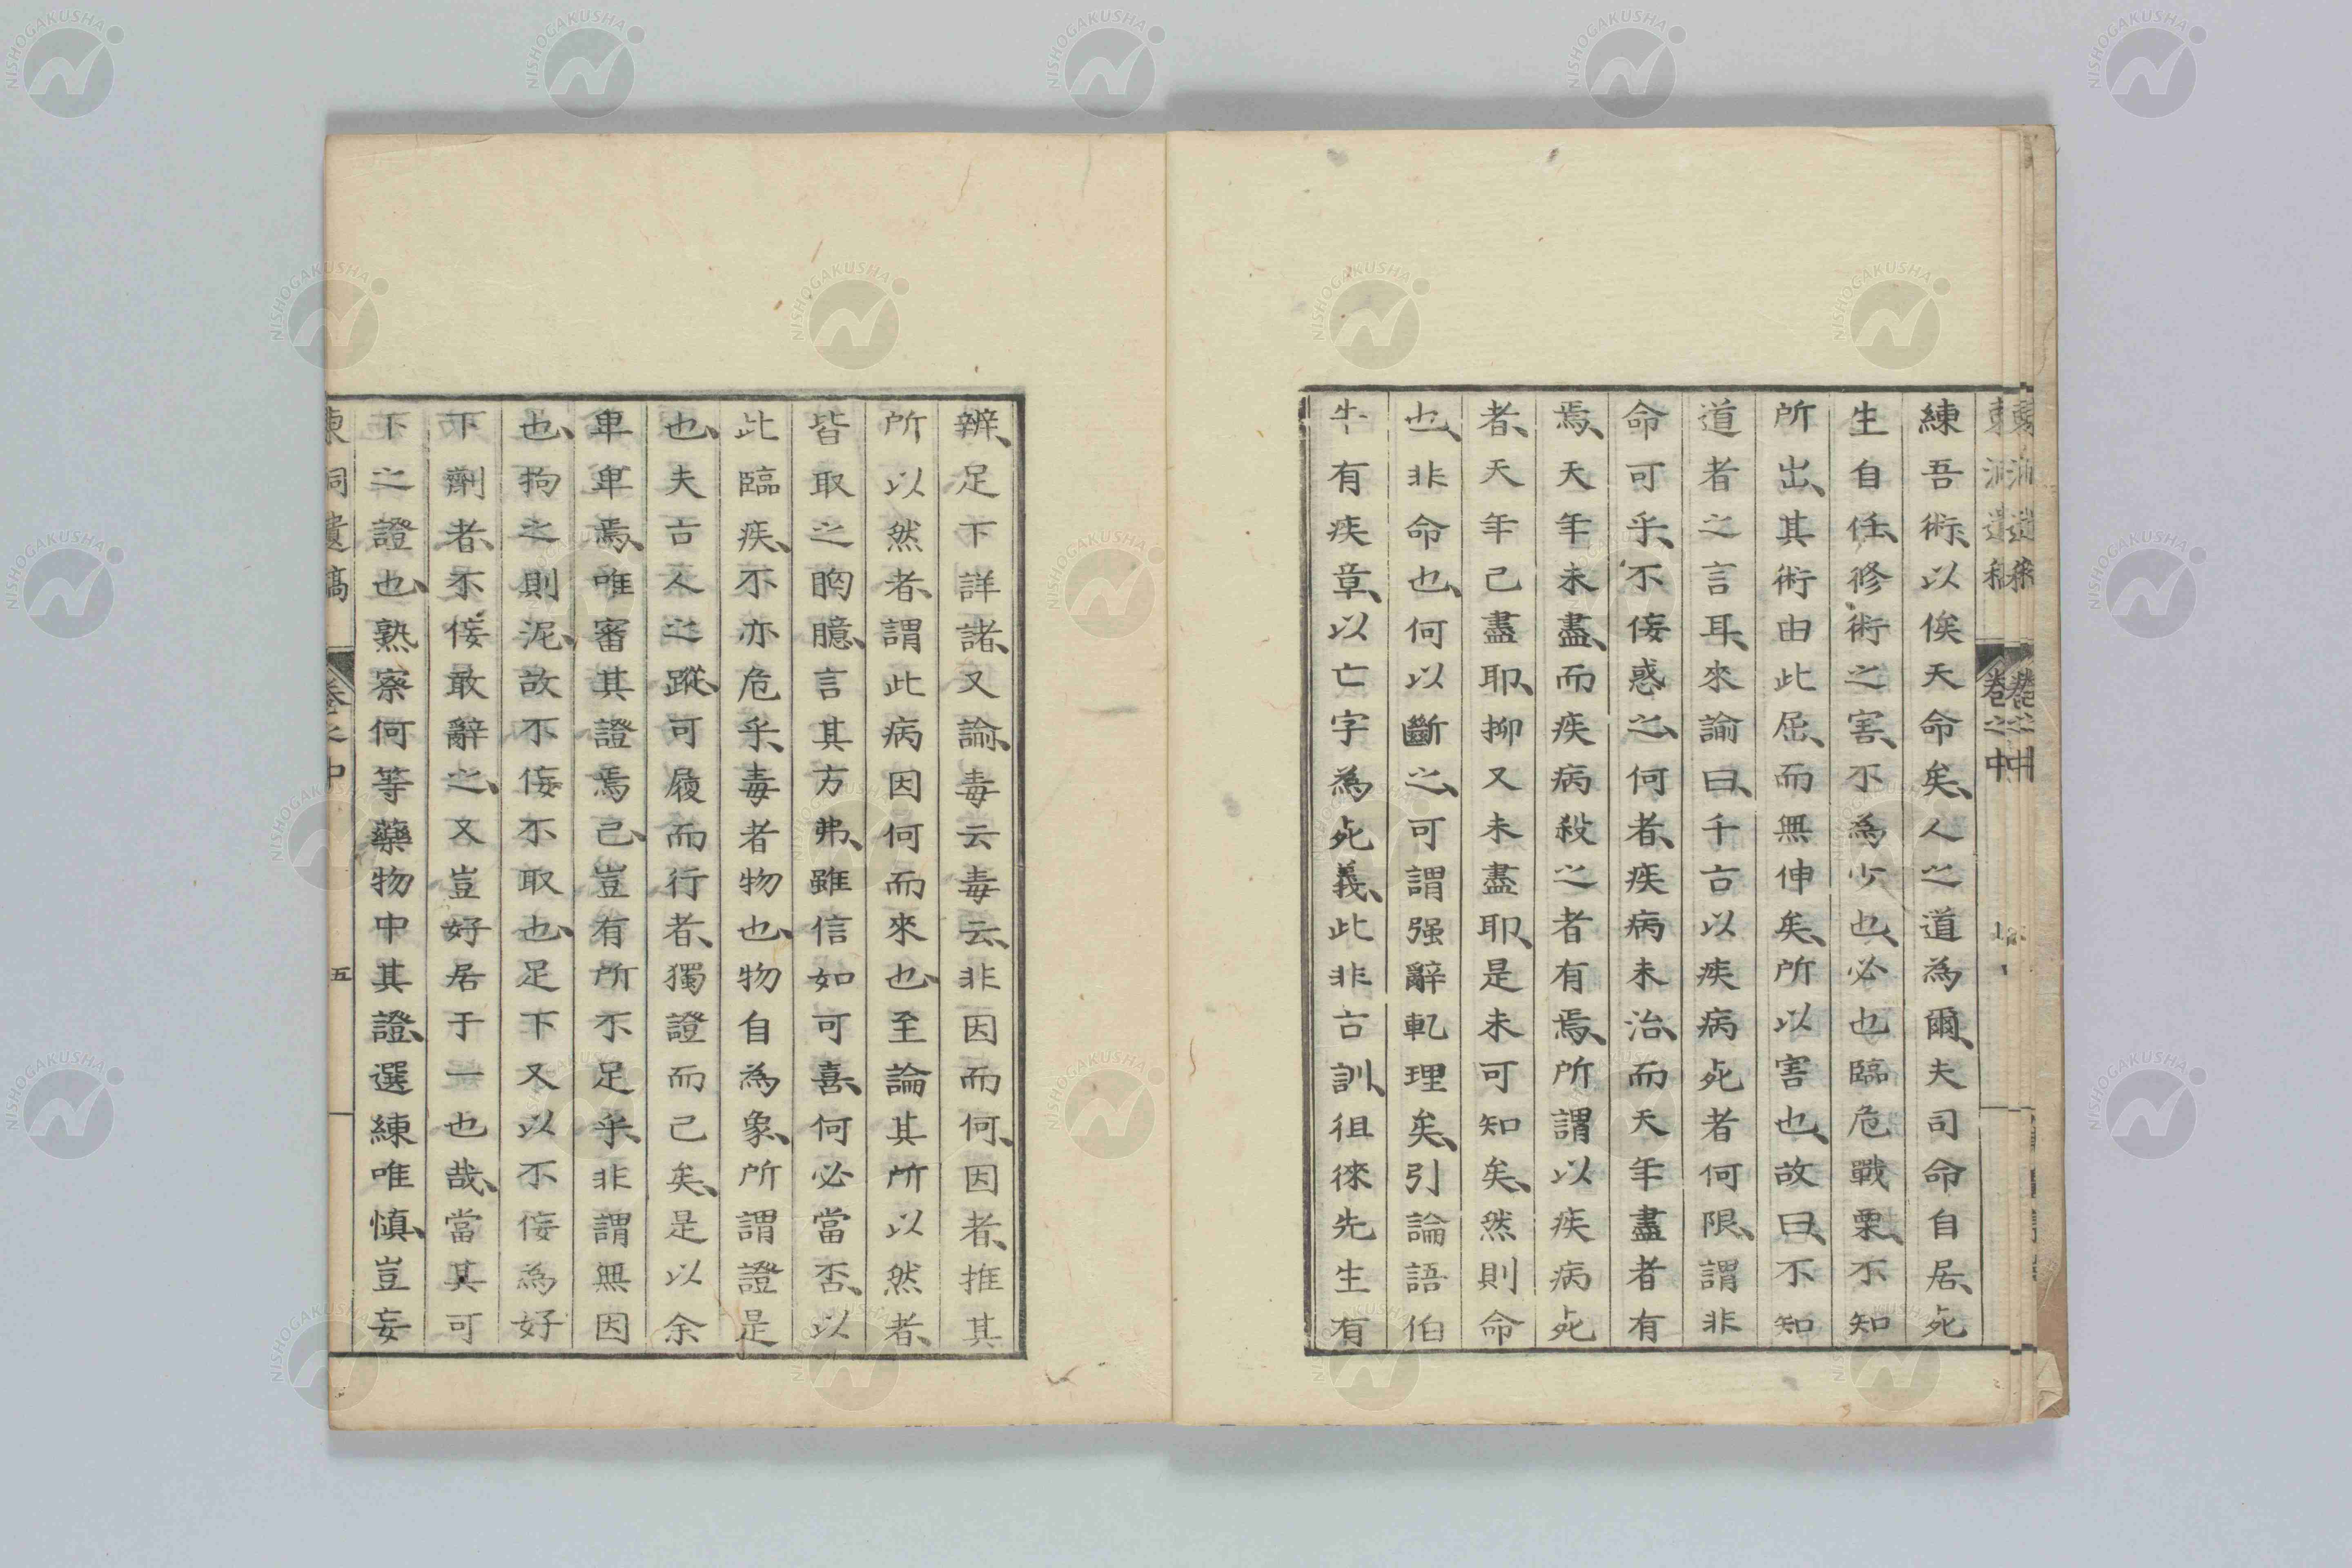 練吾術、以俟天命矣、人之道為爾、夫司命自居、死
生自任、修術之害、不為少也、必也臨危戰栗、不知
所出、其術由此屈、而無伸矣、所以害也、故曰、不知
道者之言耳、來諭曰、千古以疾病死者何限、謂非
命可乎、不佞惑之、何者、疾病未治、而天年盡者有
焉、天年未盡、而疾病殺之者有焉、所謂以疾病死
者、天年已盡耶、抑又未盡耶、是未可知矣、然則命
也、非命也、何以斷之、可謂强辭軋理矣、引論語伯
牛有疾章、以亡字為死義、此非古訓、徂徠先生有
辨、足下詳諸、又諭、毒云毒云、非因而何、因者、推其
所以然者、謂此病因何而來也、至論其所以然者、
皆取之胸臆、言其方弗、雖信如可喜、何必當否、以
此臨疾、不亦危乎、毒者物也、物自為象、所謂證是
也、夫古人之蹤、可履而行者、獨證而已矣、是以余
卑卑焉、唯審其證焉已、豈有所不足乎、非謂無因
也、拘之則泥、故不佞不取也、足下又以不佞為好
下劑者、不佞敢辭之、又豈好居于一也哉、當其可
下之證也、熟察何等藥物中其證、選練唯慎、豈妄
東洞遺稿 卷之中 五